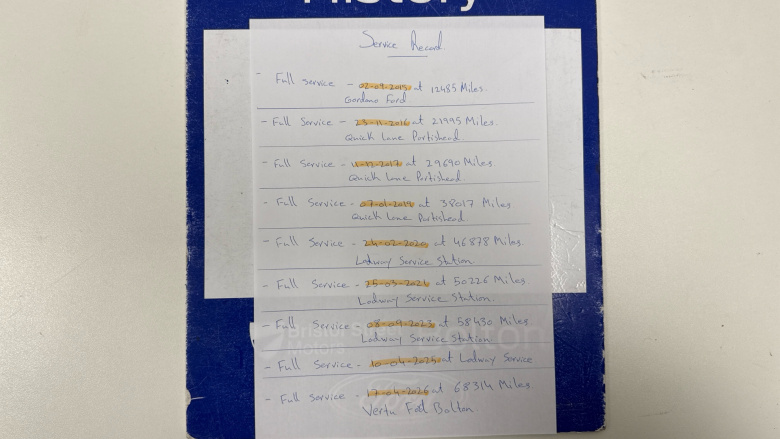 History
Service Record
- Full Service - 02-09-2015 at 12485 Miles.
Gordano Ford
- Full Service - 23-11-2016 at 21995 Miles.
Quick Lane Portishead.
- Full Service - 11-12-2017 at 29690 Miles.
Quick Lane Portishead.
- Full Service - 07-01-2019 at 38017 Miles
Quick Lane Portishead
- Full Service - 24-02-2020 at 46878 Miles.
Lodway Service Station.
- Full Service - 25-03-2021 at 50226 Miles.
Lodway Service Station.
- Full Service - 08-09-2023 at 58430 Miles
Bristol Street Motors Bolton
Lodway Service Station.
- Full Service - 10-04-2025 at Lodway Service
- Full Service - 17-04-2026 at 68314 Miles
Vertu Ford Bolton.